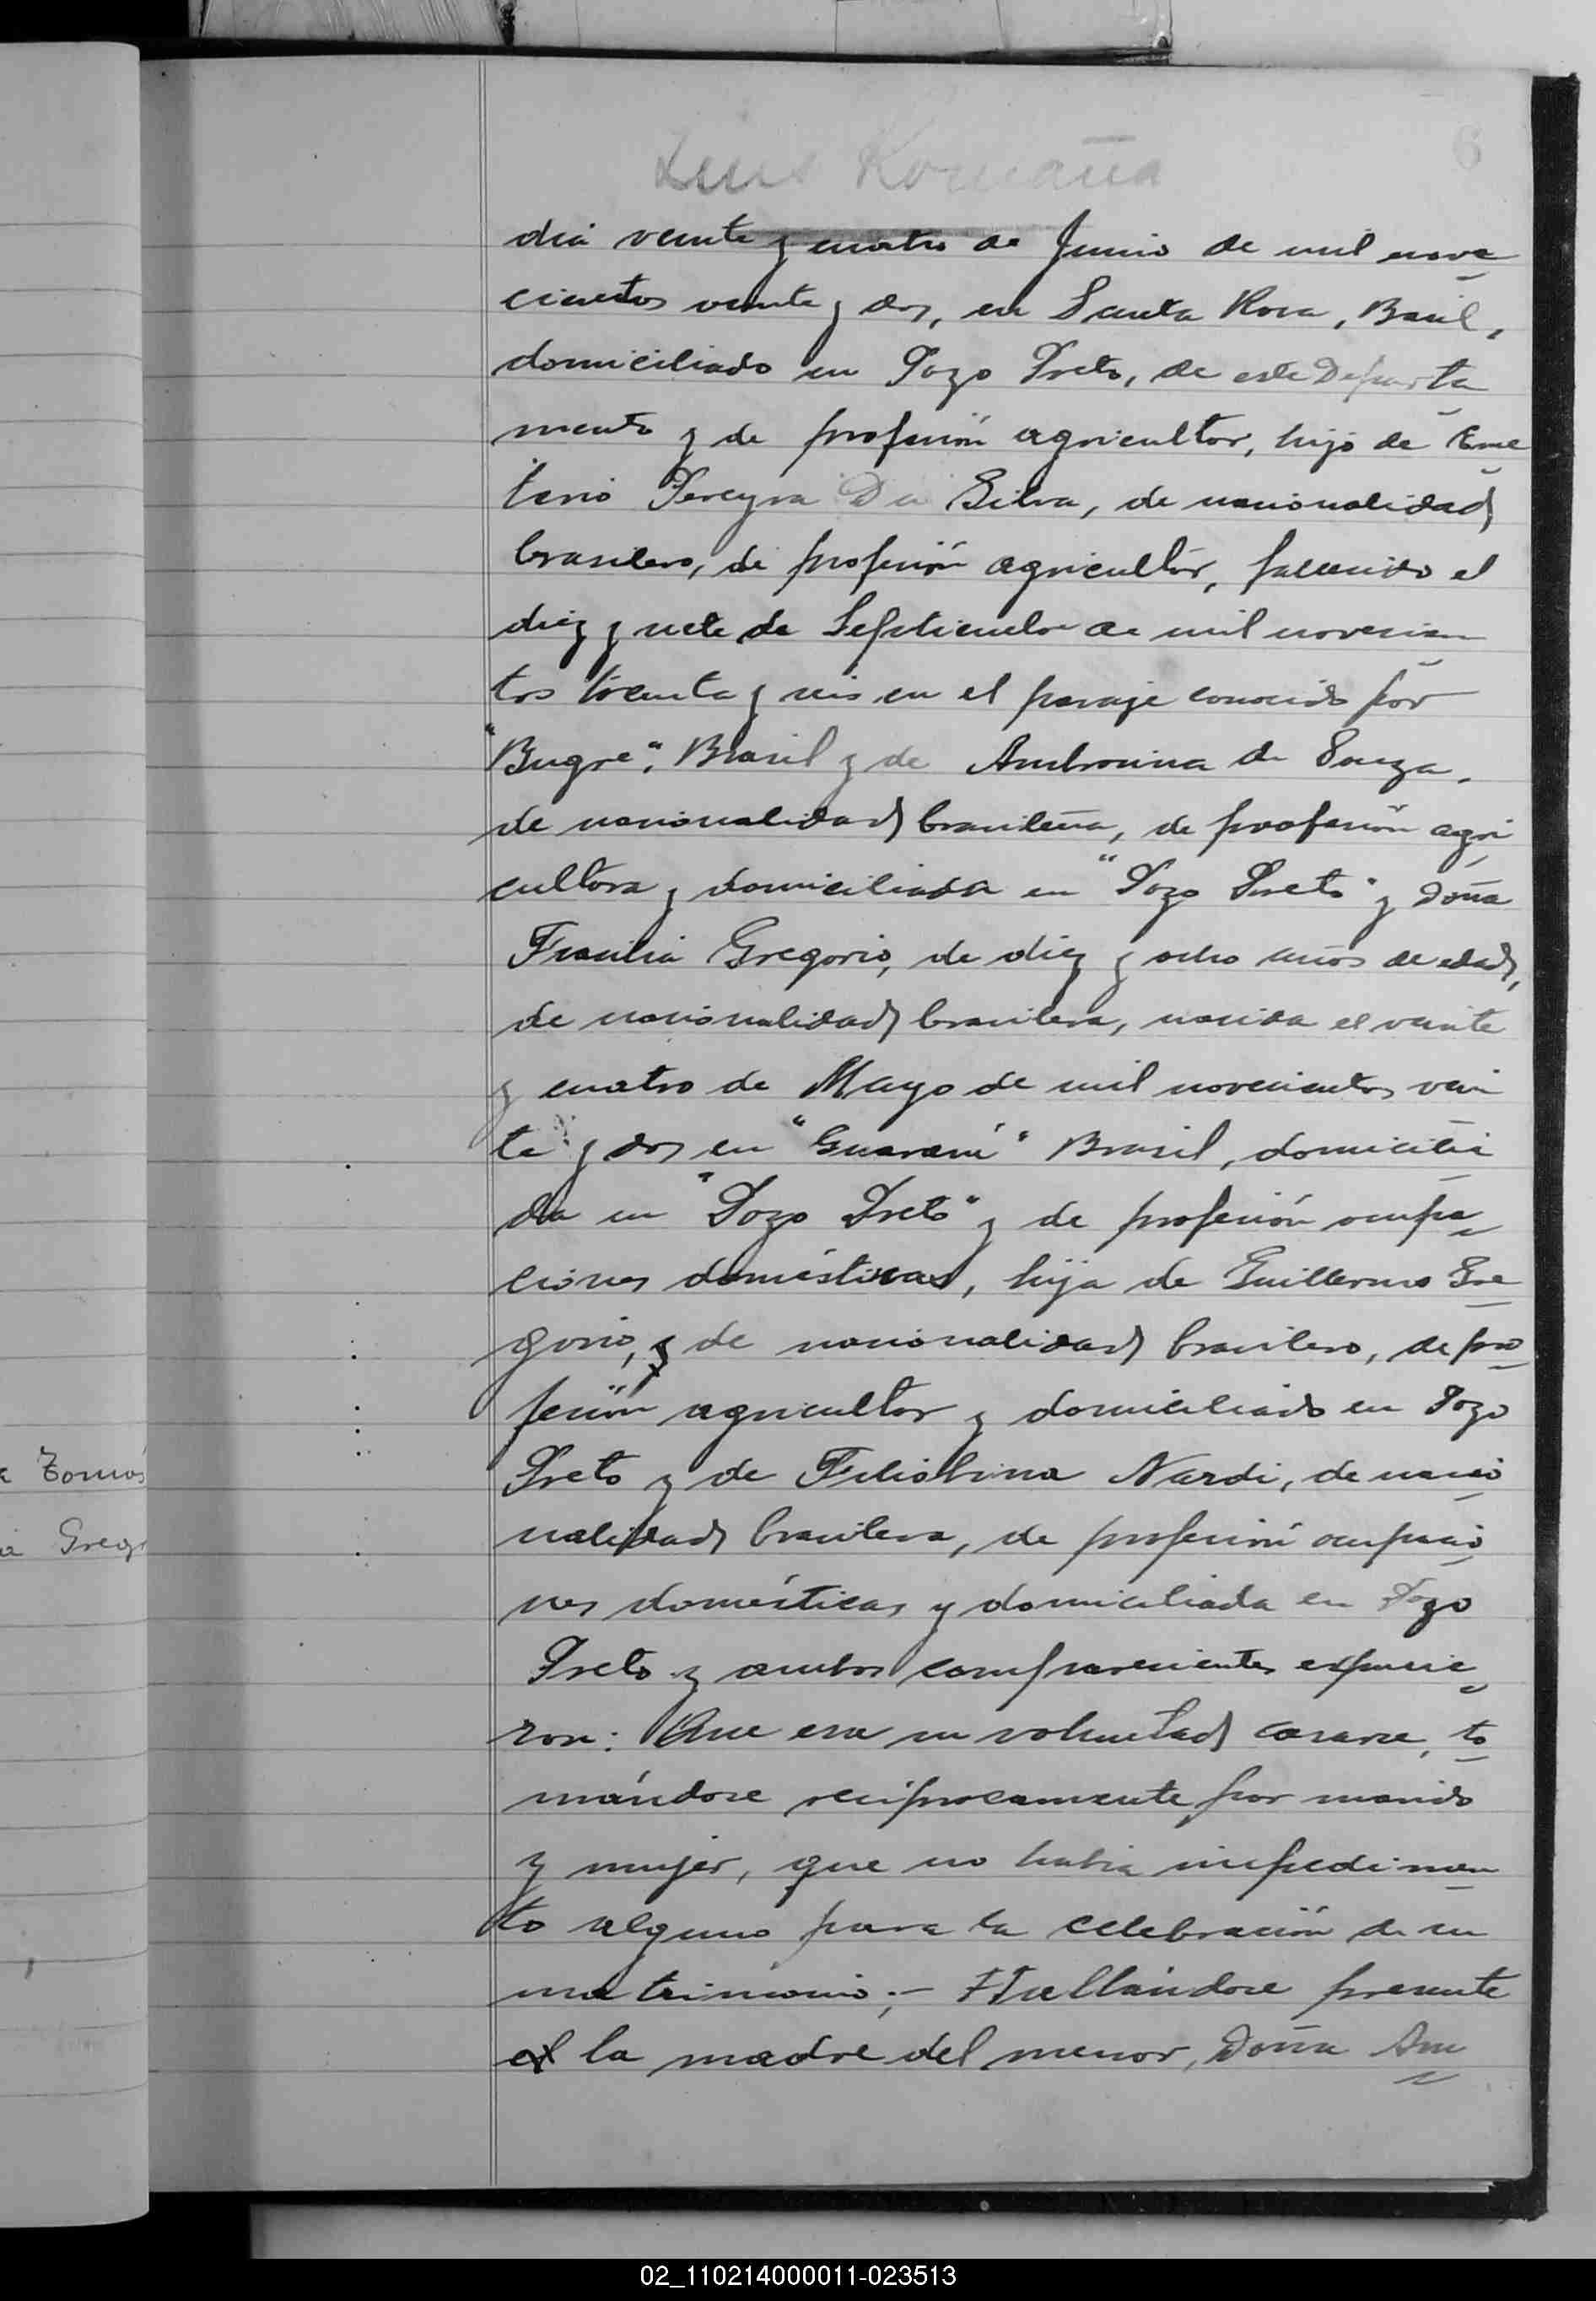 6
Luis Romaña
dia veinte y cuatro de Junio de mil nove
cientos veinte y dos, en Santa Rosa, Brasil,
domiciliado en Pozo Preto, de este Departa
mento y de profesión agricultor, hijo de Eme
terio Pereyra Da Silva, de nacionalidad
brasilero, de profesión agricultor, fallecido el
diez y siete de Septiembre de mil novecien
tos treinta y seis en el paraje conocido por
"Bugre", Brasil y de Ambrosina de Souza,
de nacionalidad brasileña, de profesión agri
cultora y domiciliada en "Pozo Preto" y Doña
Gregorio, de diez y ocho años de edad,
de nacionalidad brasilera, nacida el veinte
y cuatro de Mayo de mil novecientos vein
te y dos en "Guaraní" Brasil, domicilia
da en "Pozo Preto" y de profesión ocupa
ciones domésticas, hija de Guillermo Gre
gorio, y de nacionalidad brasilero, de pro
fesión agricultor y domiciliado en Pozo
Preto y de Nardi, de nacio
nalidad brasilera, de profesión ocupacio
nes domésticas y domiciliada en Pozo
Preto y ambos comparecientes expusie
ron: Que era su voluntad casarse, to
mándose recíprocamente por marido
y mujer, que no habia impedimen
to alguno para la celebración de su
matrimonio;- Hallándose presente
el la madre del menor, Doña Am
Tomás
Greg
02_110214000011-023513